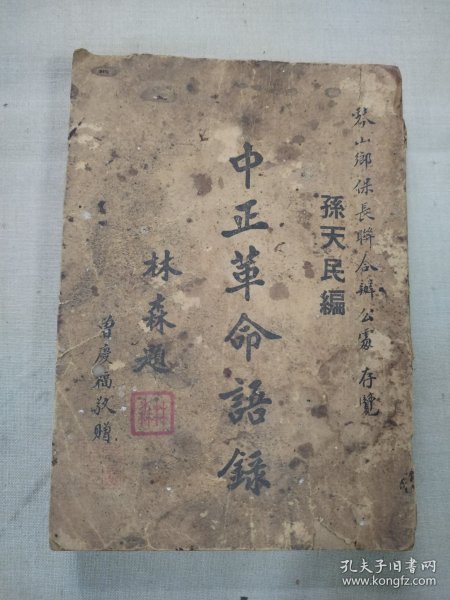 琴山鄉保長聯合辦公處 存覽
孫天民編
中正革命語錄
林森題
曾慶福敬贈
孔夫子旧书网
www.kongfz.com